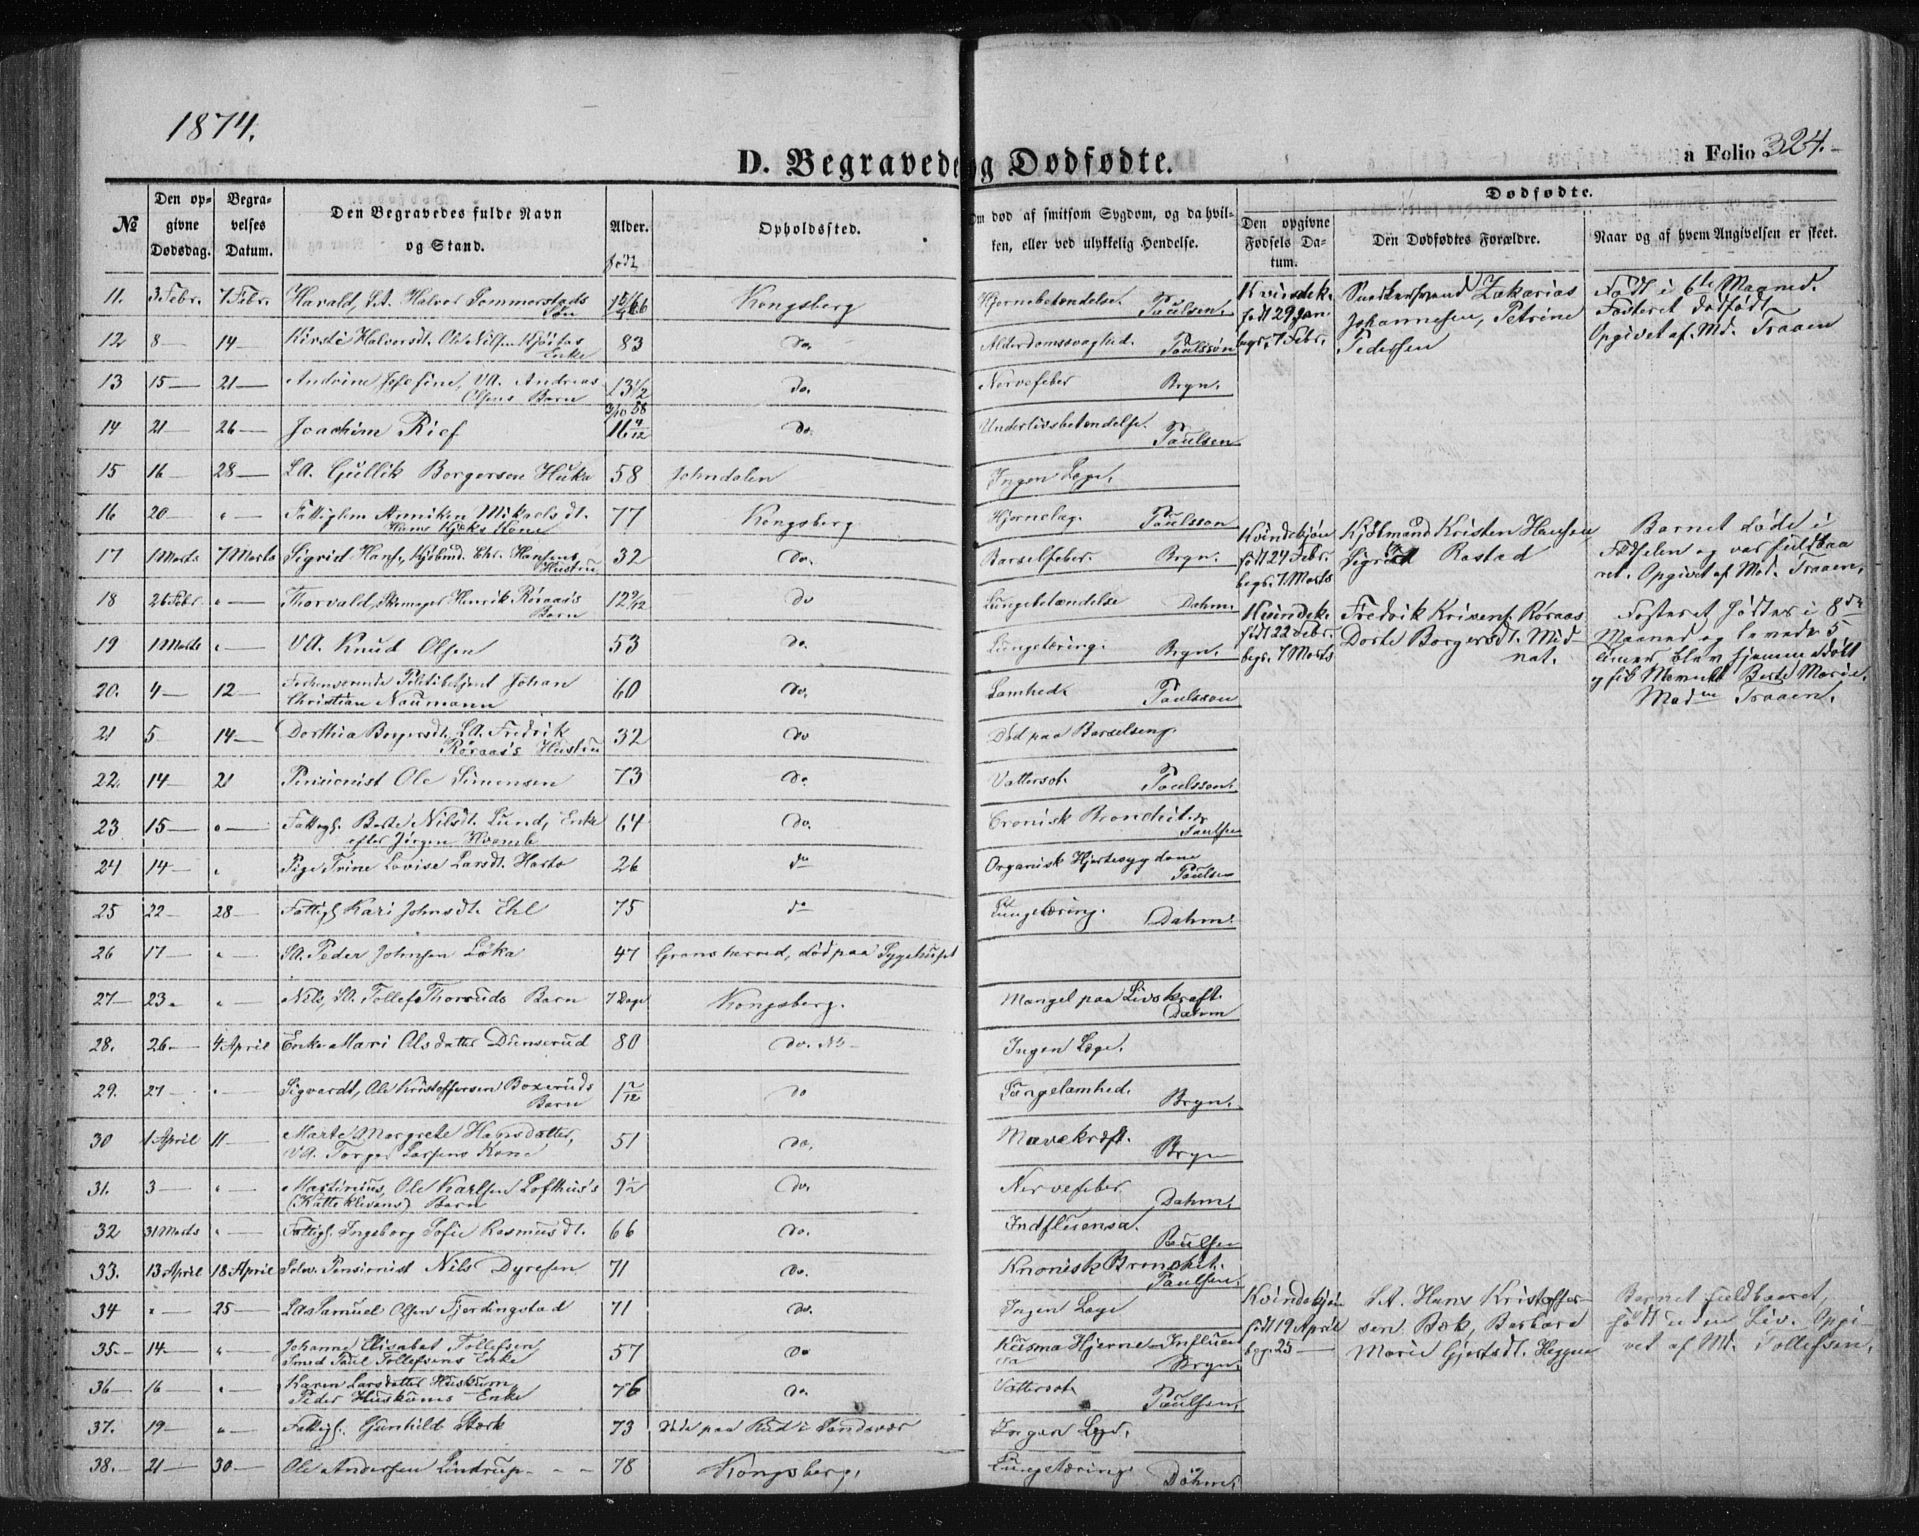 1874.
D. Begravede og Dødfødte.
a Folio 324.
№
Den opgivne Dødsdag.
Begravelses Datum.
Den Begravedes fulde Navn og Stand.
Alder.
født
Opholdssted.
Om død af smitsom Sygdom, og da hvilken, eller ved ulykkelig Hendelse.
Dødfødte.
Den opgivne Fødsels Datum.
Den Dødfødtes Forældre.
Naar og af hvem Angivelsen er skeet.
11. 3 Febr. 7 Febr. Havald, S.A. Halvor Sommerstads Kongsberg Hjernebetændelse. Paulsen.
12 8 — 14 — Kirsti Halvorsdt. Ole Nilsen Enke 83 do. Alderdomssvaghed. Paulssøn
13 15 — 21 — Andrine Josefine, VA. Andreas Olsens Barn 13 1/2 do. Nervefeber Bryn.
14 21 — 26 — Joachim Rief 16 do Underlivsbetændelse. Paulsen.
15 16 — 28 — S.A. Gullik Borgersen Huka 58 Johndalen Ingen Læge.
16 20 — " — Fattiglem Anniken Mikaelsdt. Hans Kone 77 Kongsberg Paulsson
17 1 Marts 7 Marts Sigrid Hans. Kjøbmd. Chr. Hansens Hustru 32 do. Barselfeber. Bryn.
18 26 Febr. " — Thorvald, Skomager Henrik Røraas's Barn 12 9/12 do Lungebetændelse Dahm.
19 1 Marts " — VA. Knud Olsen 53 do. Lungetæring. Bryn.
20. 4 — 12 — Forhenværende Politibetjent Johan Christian Naumann 60 do. Lamhed. Paulsson
21 5 14 — Dorthia Borgersdt. S.A. Fredrik Røraas's Hustru 32 do Død paa Barselseng.
22. 14 — 21 Pensionist Ole Simensen 73 do. Vattersot. Paulsson.
23 15 — " — Fattigl. Berte Nilsdt. Lund, Enke efter Jørgen 64 do. Cronisk Bronchit. Paulsen
24 14 — " Pige Trine Lovise Larsdt. Hasto 26 do Organisk Hjertesygdom Paulsen
25 22 — 28 — Fattigl. Kari Johnsdt. Ehl 75 do Lungetæring. Dahm.
26 17 — " — S.A. Peder Johnsen Löka 47 Gransherred, død paa Sygehuset
27 — 23 " " — Nils, S.A. Tollef Thorsruds Barn 7 Dage Kongsberg. Mangel paa Livskraft. Dahm
28. 26 — 4 April Enke Mari Olsdatter Dunserud 80 do. Ingen Læge.
29. 27 " — Sigvardt, Ole Kristoffersen Boxeruds Barn do Bryn.
30 1 April 11 — Marte Margrete Hansdatter, VA. Torger Larsens Kone 51 do. Mavekræft. Bryn
31. 3 — " — Martinius, Ole Karlsen Lofthus's (Katteklivans) Barn 9 1/2 do. Nervefeber Dahm.
32 31 Marts " — Fattigl. Ingeborg Sofie Rasmusdt. 66 do. Indfluensa. Paulsen
33. 13 April 18 April Sølv. Pensionist Nils Dyresen 71 do. Kronisk Bronchit. Paulsen.
34 " — 25 — S.A. Samuel Olsen Fjerdingstad 71 do. Ingen Læge
35 — 14 — " — Johanne Elisabet Tollefsen Smed Paul Tollefsens Enke 57 do Bryn.
36 — 16 — " — Karen Larsdatter Huskum, Peder Huskums Enke 76 do. Vattersot. Paulsen.
37. 19 — " — Fattigl. Gunhild Stærk 73 Døde paa Rud i Sandsvær Ingen Læge.
38. — 21 — 30 — Ole Andersen Lindrup - - - 78 Kongsberg. Lungetæring. Dahm.
Kvindek. født 29 Jan begr. 7 Febr.
Snedkersvend Zakarias Johannesen, Petrine Pedersen
Født i 6te Maaned. Fosteret dødfødt Opgivet af Md. Traaen
Kvindekjøn født 24 Febr. begr. 7 Marts
Kjøbmand Kristen Hansen Sigrid Rostad
Barnet døde i Fødselen og var fuldbaaret. Opgivet af Md. Traaen.
Kvindek. født 22 Febr. begr. 7 Marts
Fredrik Røraas Dorte Borgersdt.
Fosteret fødtes i 8de Maaned og levede 5 Timer blev hjemmedøbt og fik Navnet Berte Marie. Madm Traaen.
Kvindekjøn født 19 April begr. 25 —
S.A. Hans Kristoffersen Bæk, Barbara Marie Gjertsdt.
Barnet fuldbaaret, født uden Liv. Opgivet af Md. Tollefsen.